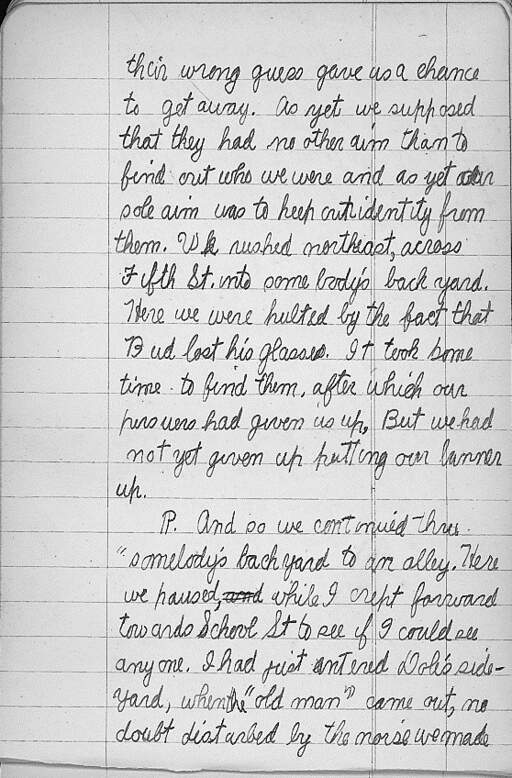 their wrong guess gave us a chance
to get away. As yet we supposed
that they had no other aim than to
find out who we were and as yet our
sole aim was to keep out identity from
them. We rushed northeast, across
Fifth St. into some body's back yard.
Here we were hulted by the fact that
Bud lost his glasses. It took some
time to find them, after which our
persuers had given us up, But we had
not yet given up putting our banner
up.
P. And so we continued thru
"somebody's back yard to an alley. Here
we paused, and while I crept forward
towards School St to see if I could see
anyone. I had just entered Dole's side-
yard, when the "old man" came out, no
doubt disturbed by the noise we made